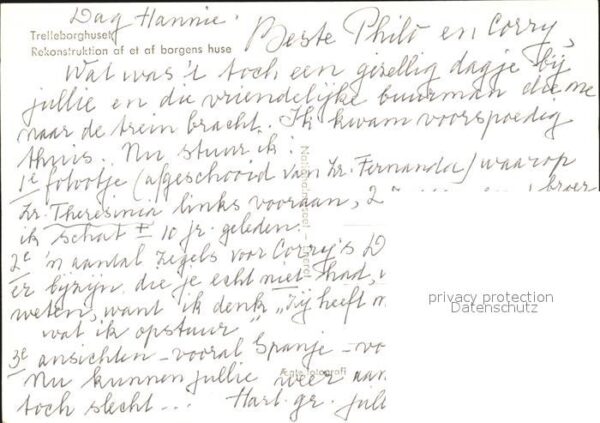 Dag Hannie.
Trelleborghuset
Rekonstruktion af et af borgens huse
Beste Philo en Corry,
Wat was 't toch een gezellig dagje bij
jullie en die vriendelijke buurman die me
naar de trein bracht. Ik kwam voorspoedig
thuis. Nu stuur ik:
1e fotootje (afgeschooid van Zr. Fernanda) waarop
Zr. Theresinia links vooraan, 2 broer
ik schat ± 10 jr. geleden.
2e 'n aantal zegels voor Corry's D
er bijzijn die je echt niet had,
weten, want ik denk „Zij heeft
wat ik opstuur"
3e ansichten - vooral Spanje - vo
Nu kunnen jullie weer aan
toch slecht... Hart. gr. jull
Nationalmuseet
Ægte fotografi
privacy protection
Datenschutz